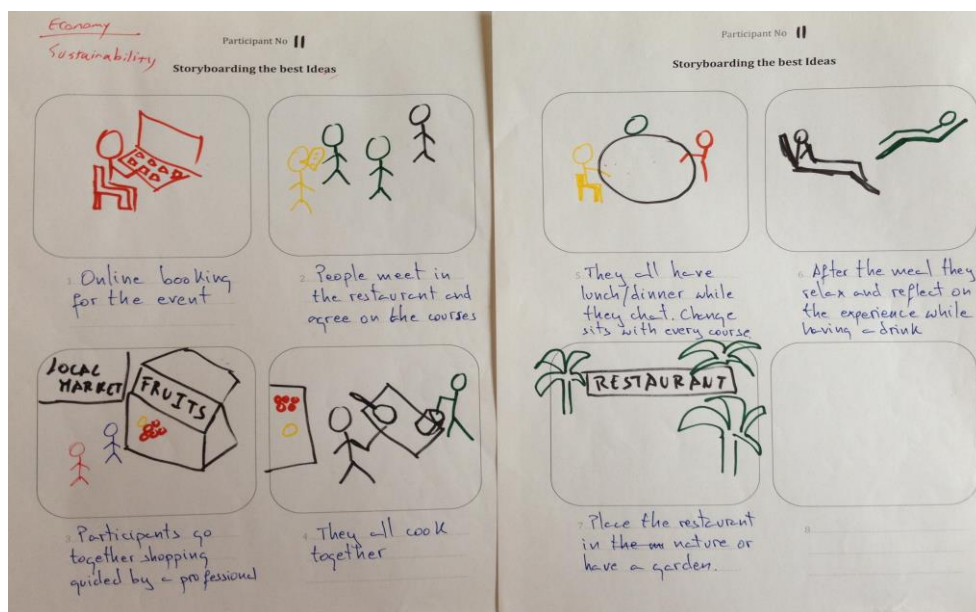 Economy
Sustainability
Participant No 11
Storyboarding the best Ideas
1. Online booking
for the event
2. People meet in
the restaurant and
agree on the courses
LOCAL
MARKET
FRUITS
3. Participants go
together shopping
guided by a professional
4. They all cook
together
Participant No 11
Storyboarding the best Ideas
5. They all have
lunch/dinner while
they chat. Change
sits with every course
6. After the meal they
relax and reflect on
the experience while
having a drink
RESTAURANT
7. Place the restaurant
in the nature or
have a garden.
8.